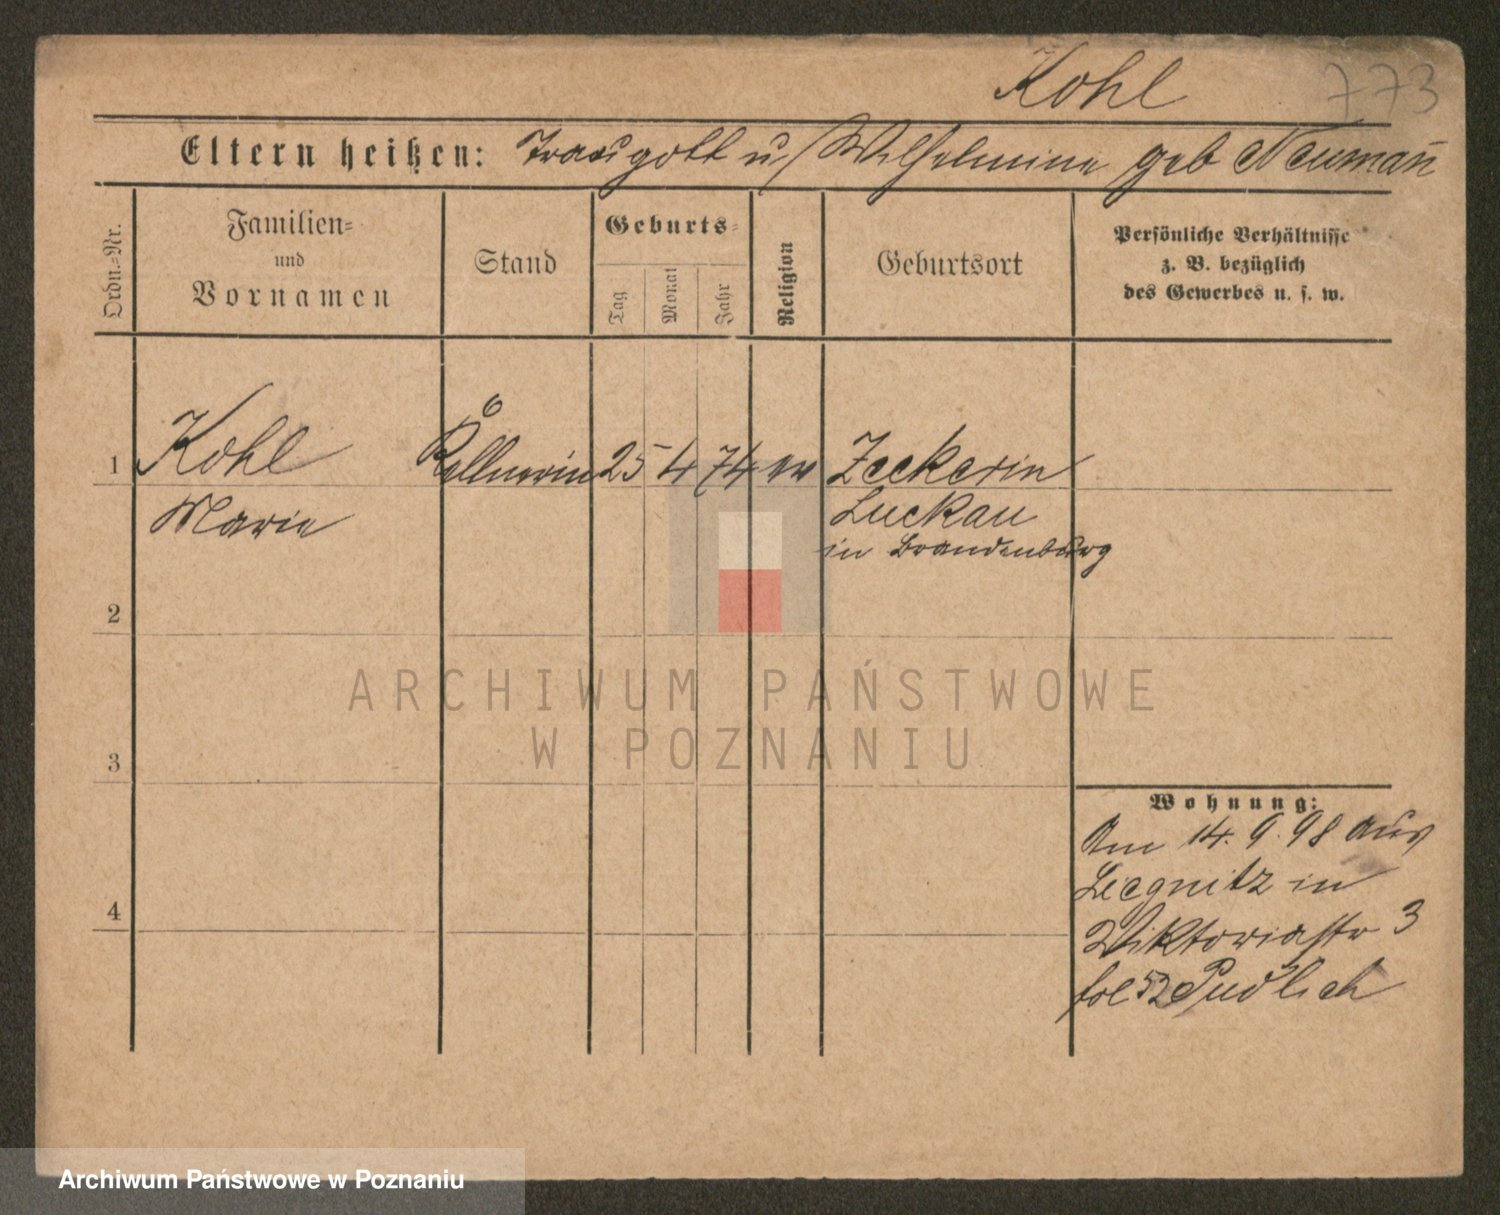 Kohl 773
Eltern heißen: Traugott u/ Wilhelmine geb Neumañ
Ordn.-Nr.
Familien-
und
Vornamen
Stand
Geburts-
Tag
Monat
Jahr
Religion
Geburtsort
Persönliche Verhältnisse
z. B. bezüglich
des Gewerbes u. s. w.
1 Kohl Kellnerin 25 4 74 ev Zeckerin
Marie Luckau
in Brandenburg
2
3
4
Wohnung:
Am 14. 9. 98 aus
Liegnitz in
Viktoriastr 3
bei Pudlich
ARCHIWUM PAŃSTWOWE
W POZNANIU
Archiwum Państwowe w Poznaniu